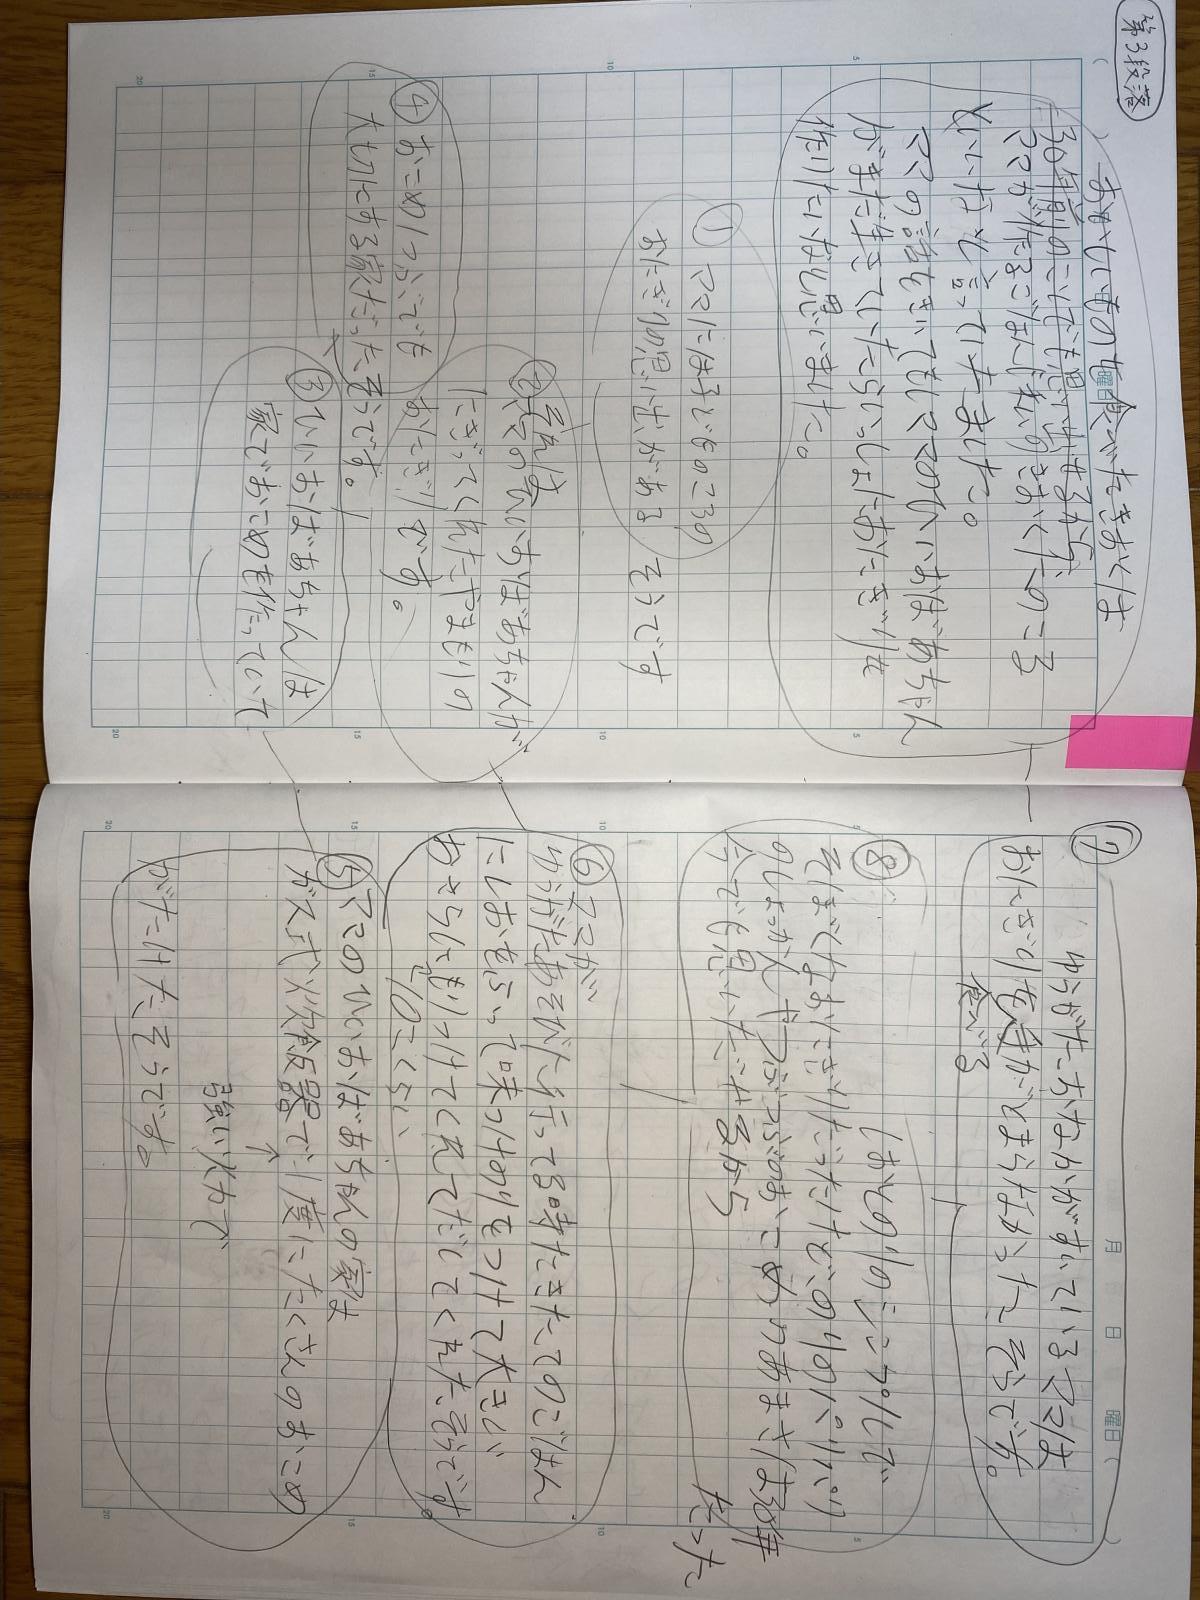 第3段落
おかしいものを食べたきおくは
30年前のことでも思い出せるから、
ママが作るごはんもきおくにのこる
といいなと言っていました。
ママの話をきいてもしママのひいおばあちゃん
がまだ生きていたらいっしょにおにぎりを
作りたいなと思いました。
① ママには子どものころの
おにぎりの思い出がある そうです
② それは
ママのひいおばあちゃんが
にぎってくれたやまもりの
おにぎりです。
④ おこめ1つぶでも
大切にする家だったそうです。
③ ひいおばあちゃんは
家でおこめを作っていて
⑦ ゆうがたおなかがすいているママは
おにぎりを
食べる
手がとまらなかったそうです。
⑧ しおとのりのシンプルで
そぼくなおにぎりだったけどのりのパリパリ
のしょっかんや1つぶ1つぶのおこめのあまさは30年
たった
今でも思いだせるから
⑥ ママが
ゆうがたあそびに行って
る時たきたてのごはん
にしおをふって味つけのりをつけて大きい
おさらに
10こくらい
もりつけてくれてだしてくれたそうです。
⑤ ママのひいおばあちゃんの家は
ガス式炊飯器で1度にたくさんのおこめ
強い火力で
がたけたそうです。
月 日 曜日
5
10
15
20